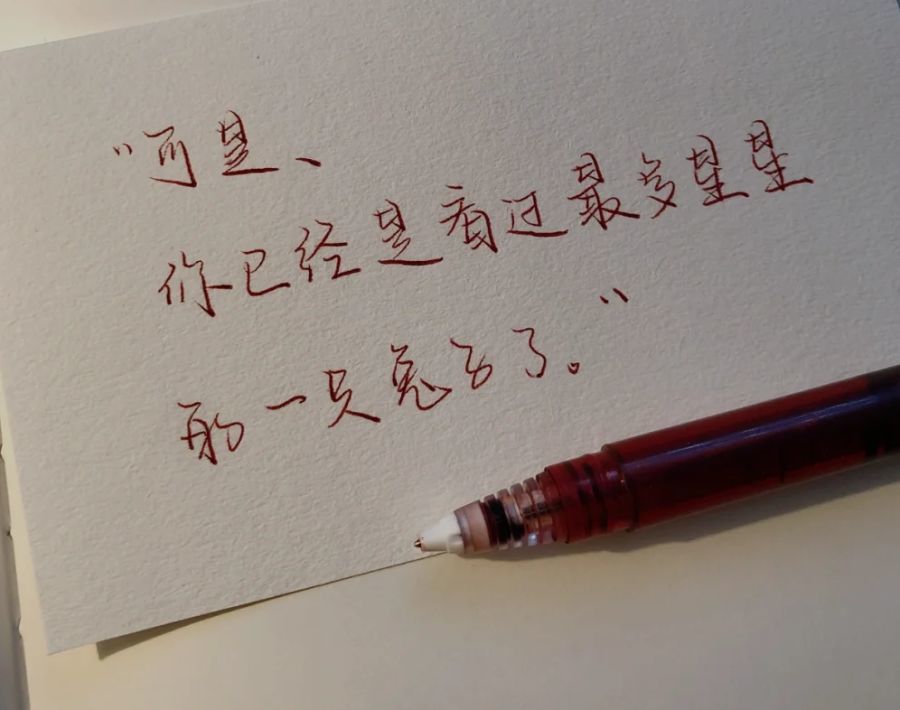 "可是、
你已经是看过最多星星
的一只兔子了。"